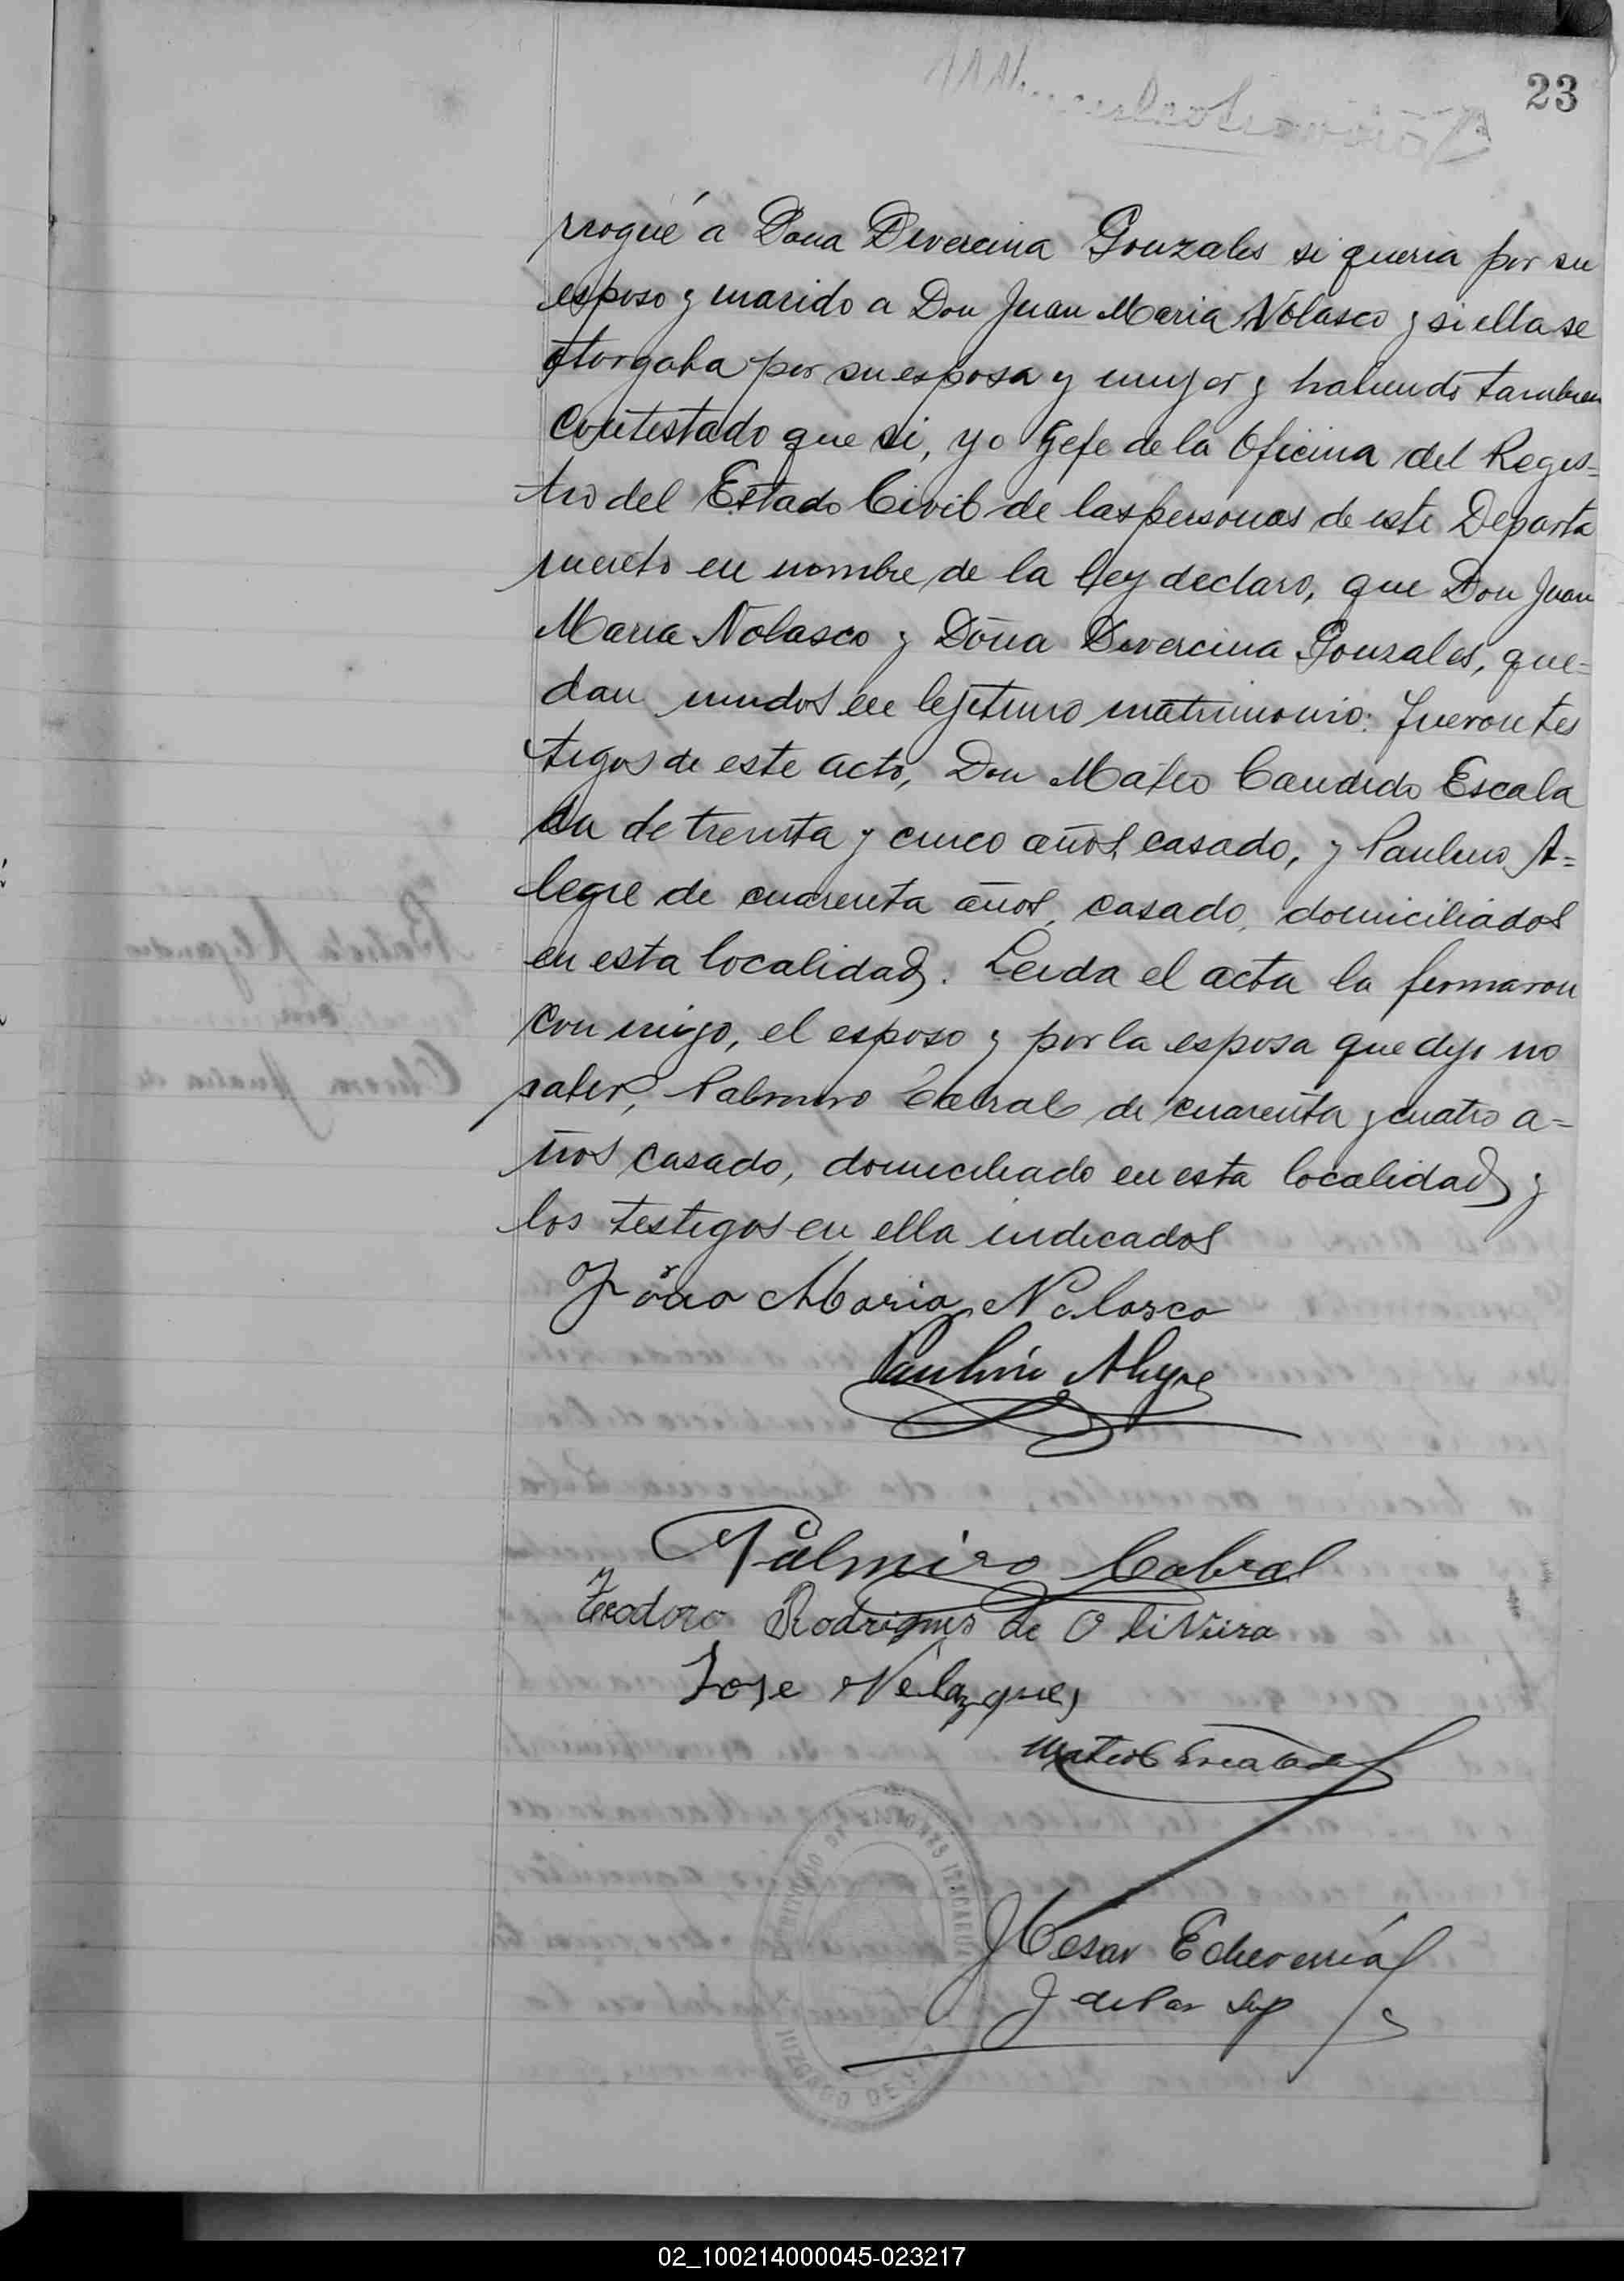 23
rrogué a Dona Divercina Gonzales si queria por su
esposo y marido a Don Juan Maria Nolasco y si ella se
otorgaba por su esposa y mujer y habiendo tambien
contestado que si, yo Gefe de la Oficina del Regis=
tro del Estado Civil de las personas de este Departa
mento en nombre de la ley declaro, que Don Juan
Maria Nolasco y Doña Divercina Gonzales, que=
dan unidos en lejitimo matrimonio: fueron tes
tigos de este acto, Don Mateo Candido Escala
da de treinta y cinco años, casado, y Paulino A=
legre de cuarenta años, casado, domiciliados
en esta localidad. Leida el acta la firmaron
con migo, el esposo y por la esposa que dijo no
saber, Palmiro Cabral de cuarenta y cuatro a=
ños casado, domiciliado en esta localidad y
los testigos en ella indicados
João Maria Nolasco
Paulino Alegre
Palmiro Cabral
Teodoro Rodrigues de Oliveira
Jose Velazques
Mateo C Escalada
J Cesar Echeverría
J de Paz Sup
JUZGADO DE
02_100214000045-023217